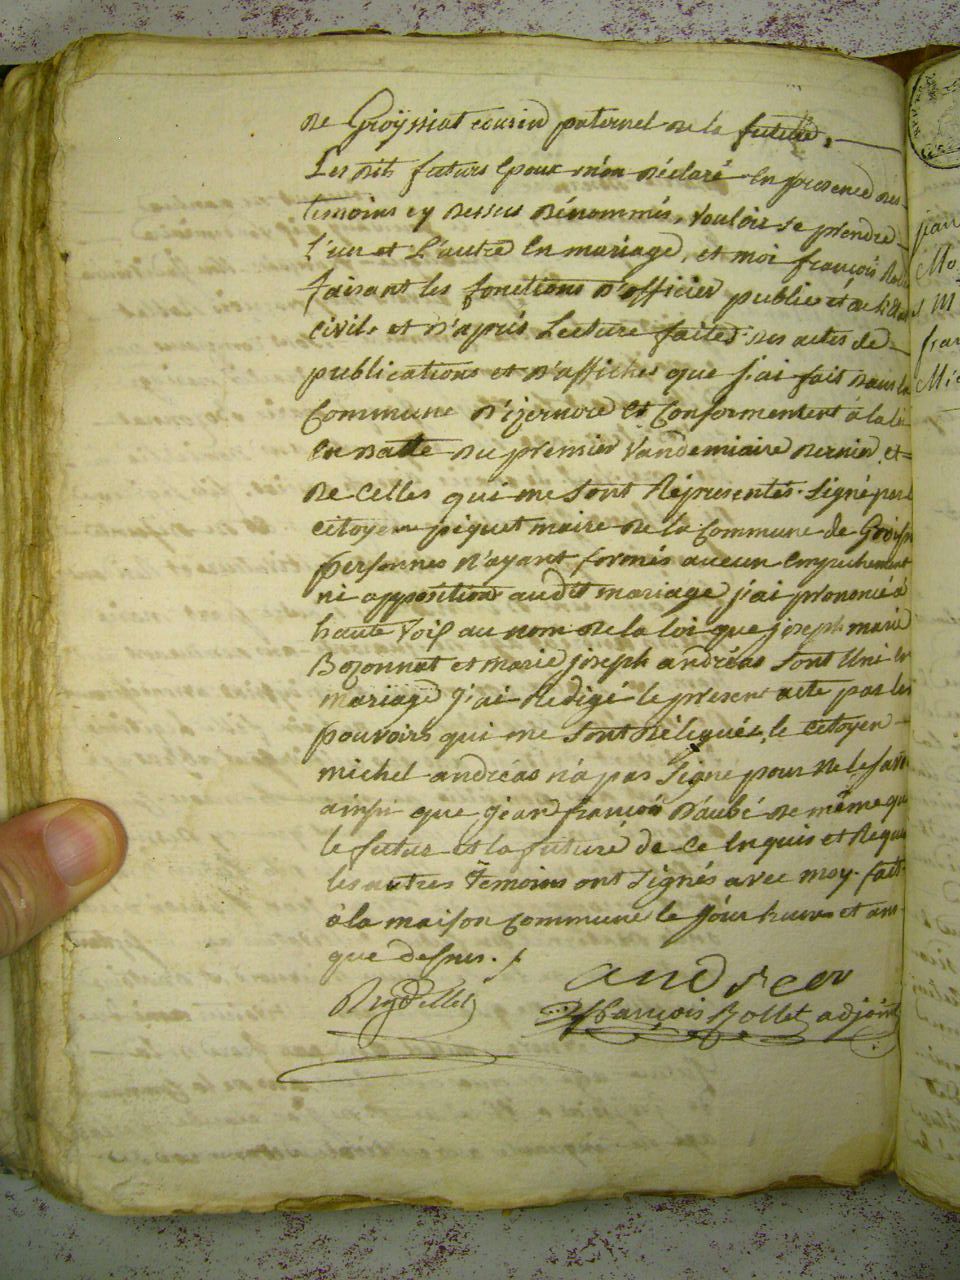 de Groÿssiat cousin paternel de la future,
Les dits futurs Epoux m'on déclaré En presence des
temoins cy dessus dénommés, vouloir se prendre
L'un et L'autre En mariage, et moi françois
faisant les fonctions d'officier public et de
civile et d'après Lecture faites des actes de
publications et d'affiches que j'ai fait dans la
Commune d'izernore Et Conformement à la loi
En datte du premier Vandemiaire dernier, et
de Celles qui me sont Représentés. Signé par
citoyen piquet maire de la Commune de
personnes n'ayant formés aucun Empechement
ni opposition audit mariage j'ai prononcé à
haute Voix au nom de la loi que joseph marie
Bozonnat et marie joseph andréas sont Uni En
mariage j'ai Redigé le présent acte pas les
pouvoirs qui me sont délégués, le citoyen
michel andréas n'a pas Signé pour ne le
ainsi que jean françois Daubé de même que
le futur et la future de ce Enquis et
les autres Témoins ont signés avec moy. fait
à la maison commune le jour heure et an
que dessus.
françois Rollet adjoint
Mo
M
fran
Mic